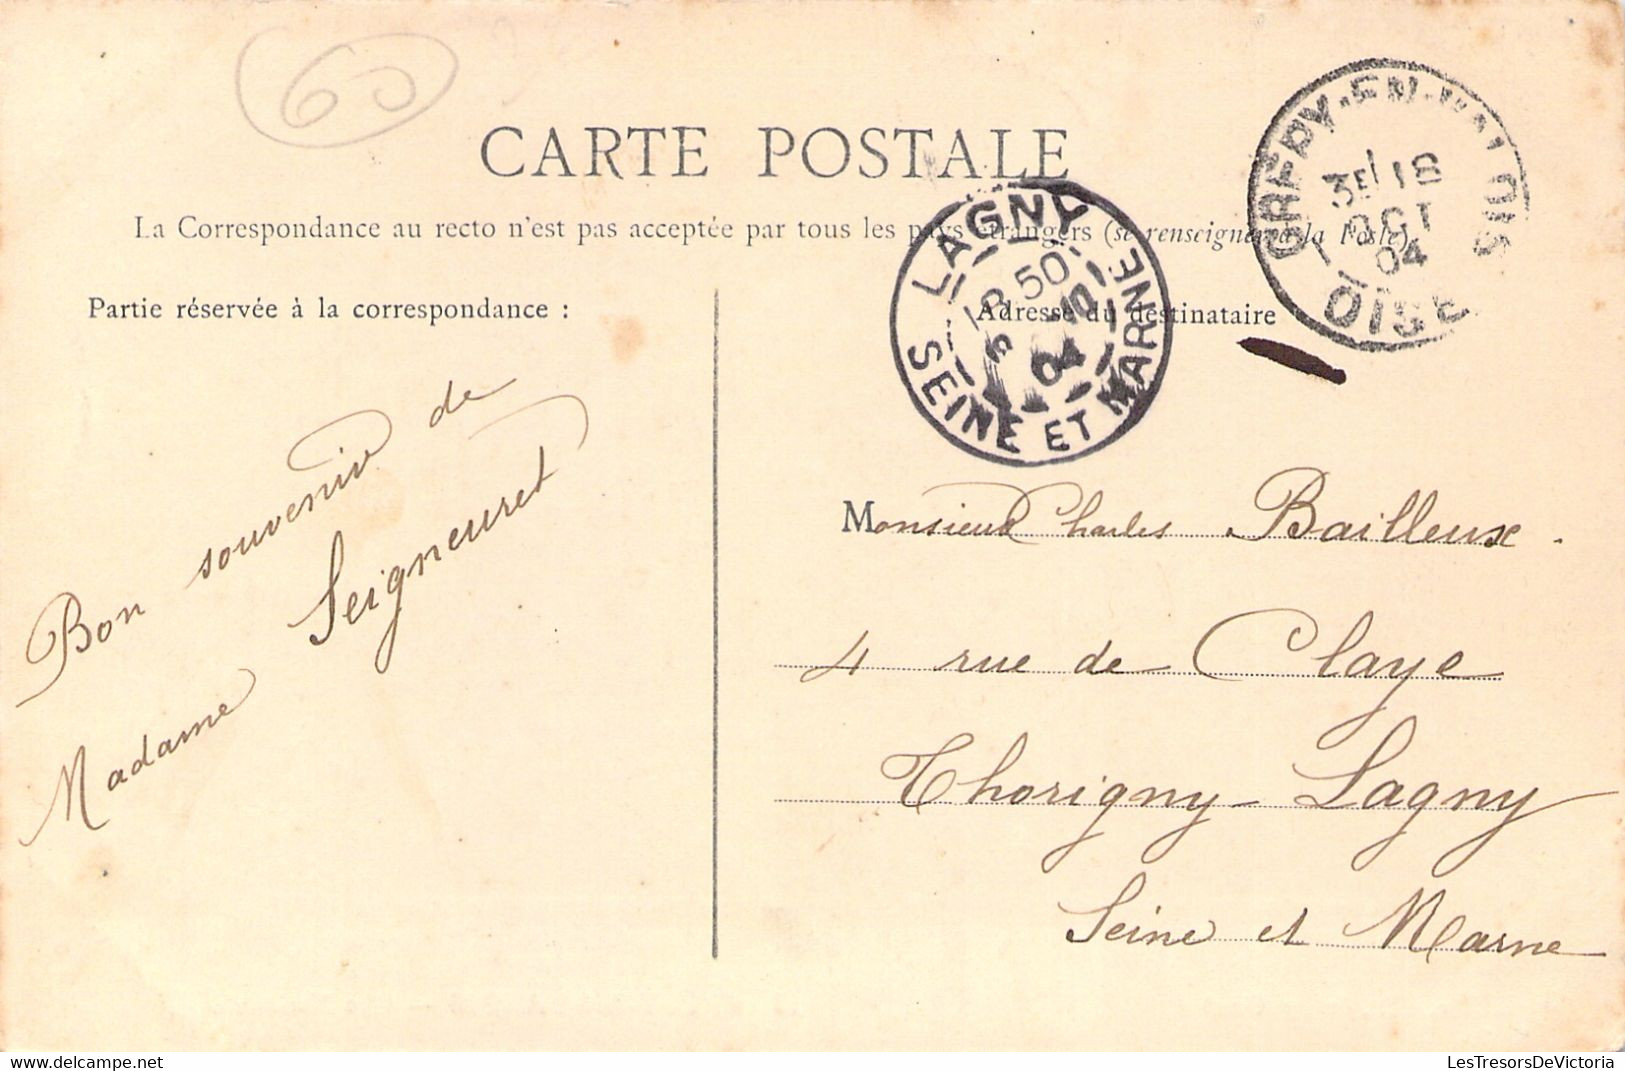 60
CARTE POSTALE
La Correspondance au recto n'est pas acceptée par tous les pays étrangers (se renseigner à la Poste)
Partie réservée à la correspondance :
Adresse du destinataire
LAGNY
SEINE ET MARNE
18 50
04
OISE
3E 18
OCT
04
Bon souvenir de
Madame Seigneuret
Monsieur Charles Bailleux.
4 rue de Claye
Thorigny-Lagny
Seine et Marne
LesTresorsDeVictoria